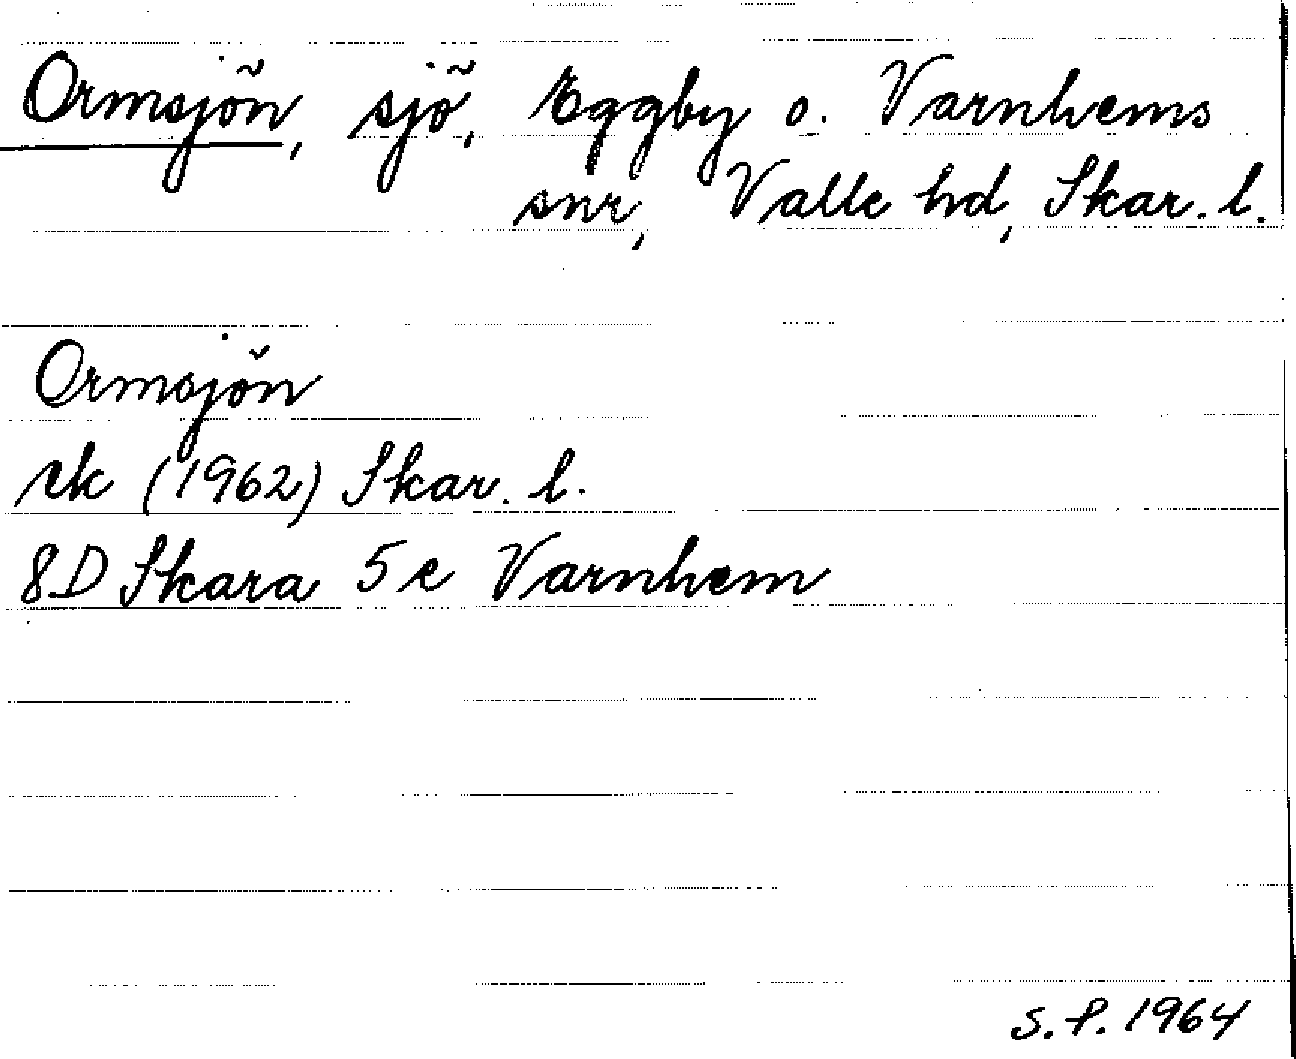 Ormsjön, sjö, Eggby o. Varnhems
snr, Valle hd, Skar. l.
Ormsjön
rk (1962) Skar. l.
8D Skara 5e Varnhem
S.P. 1964